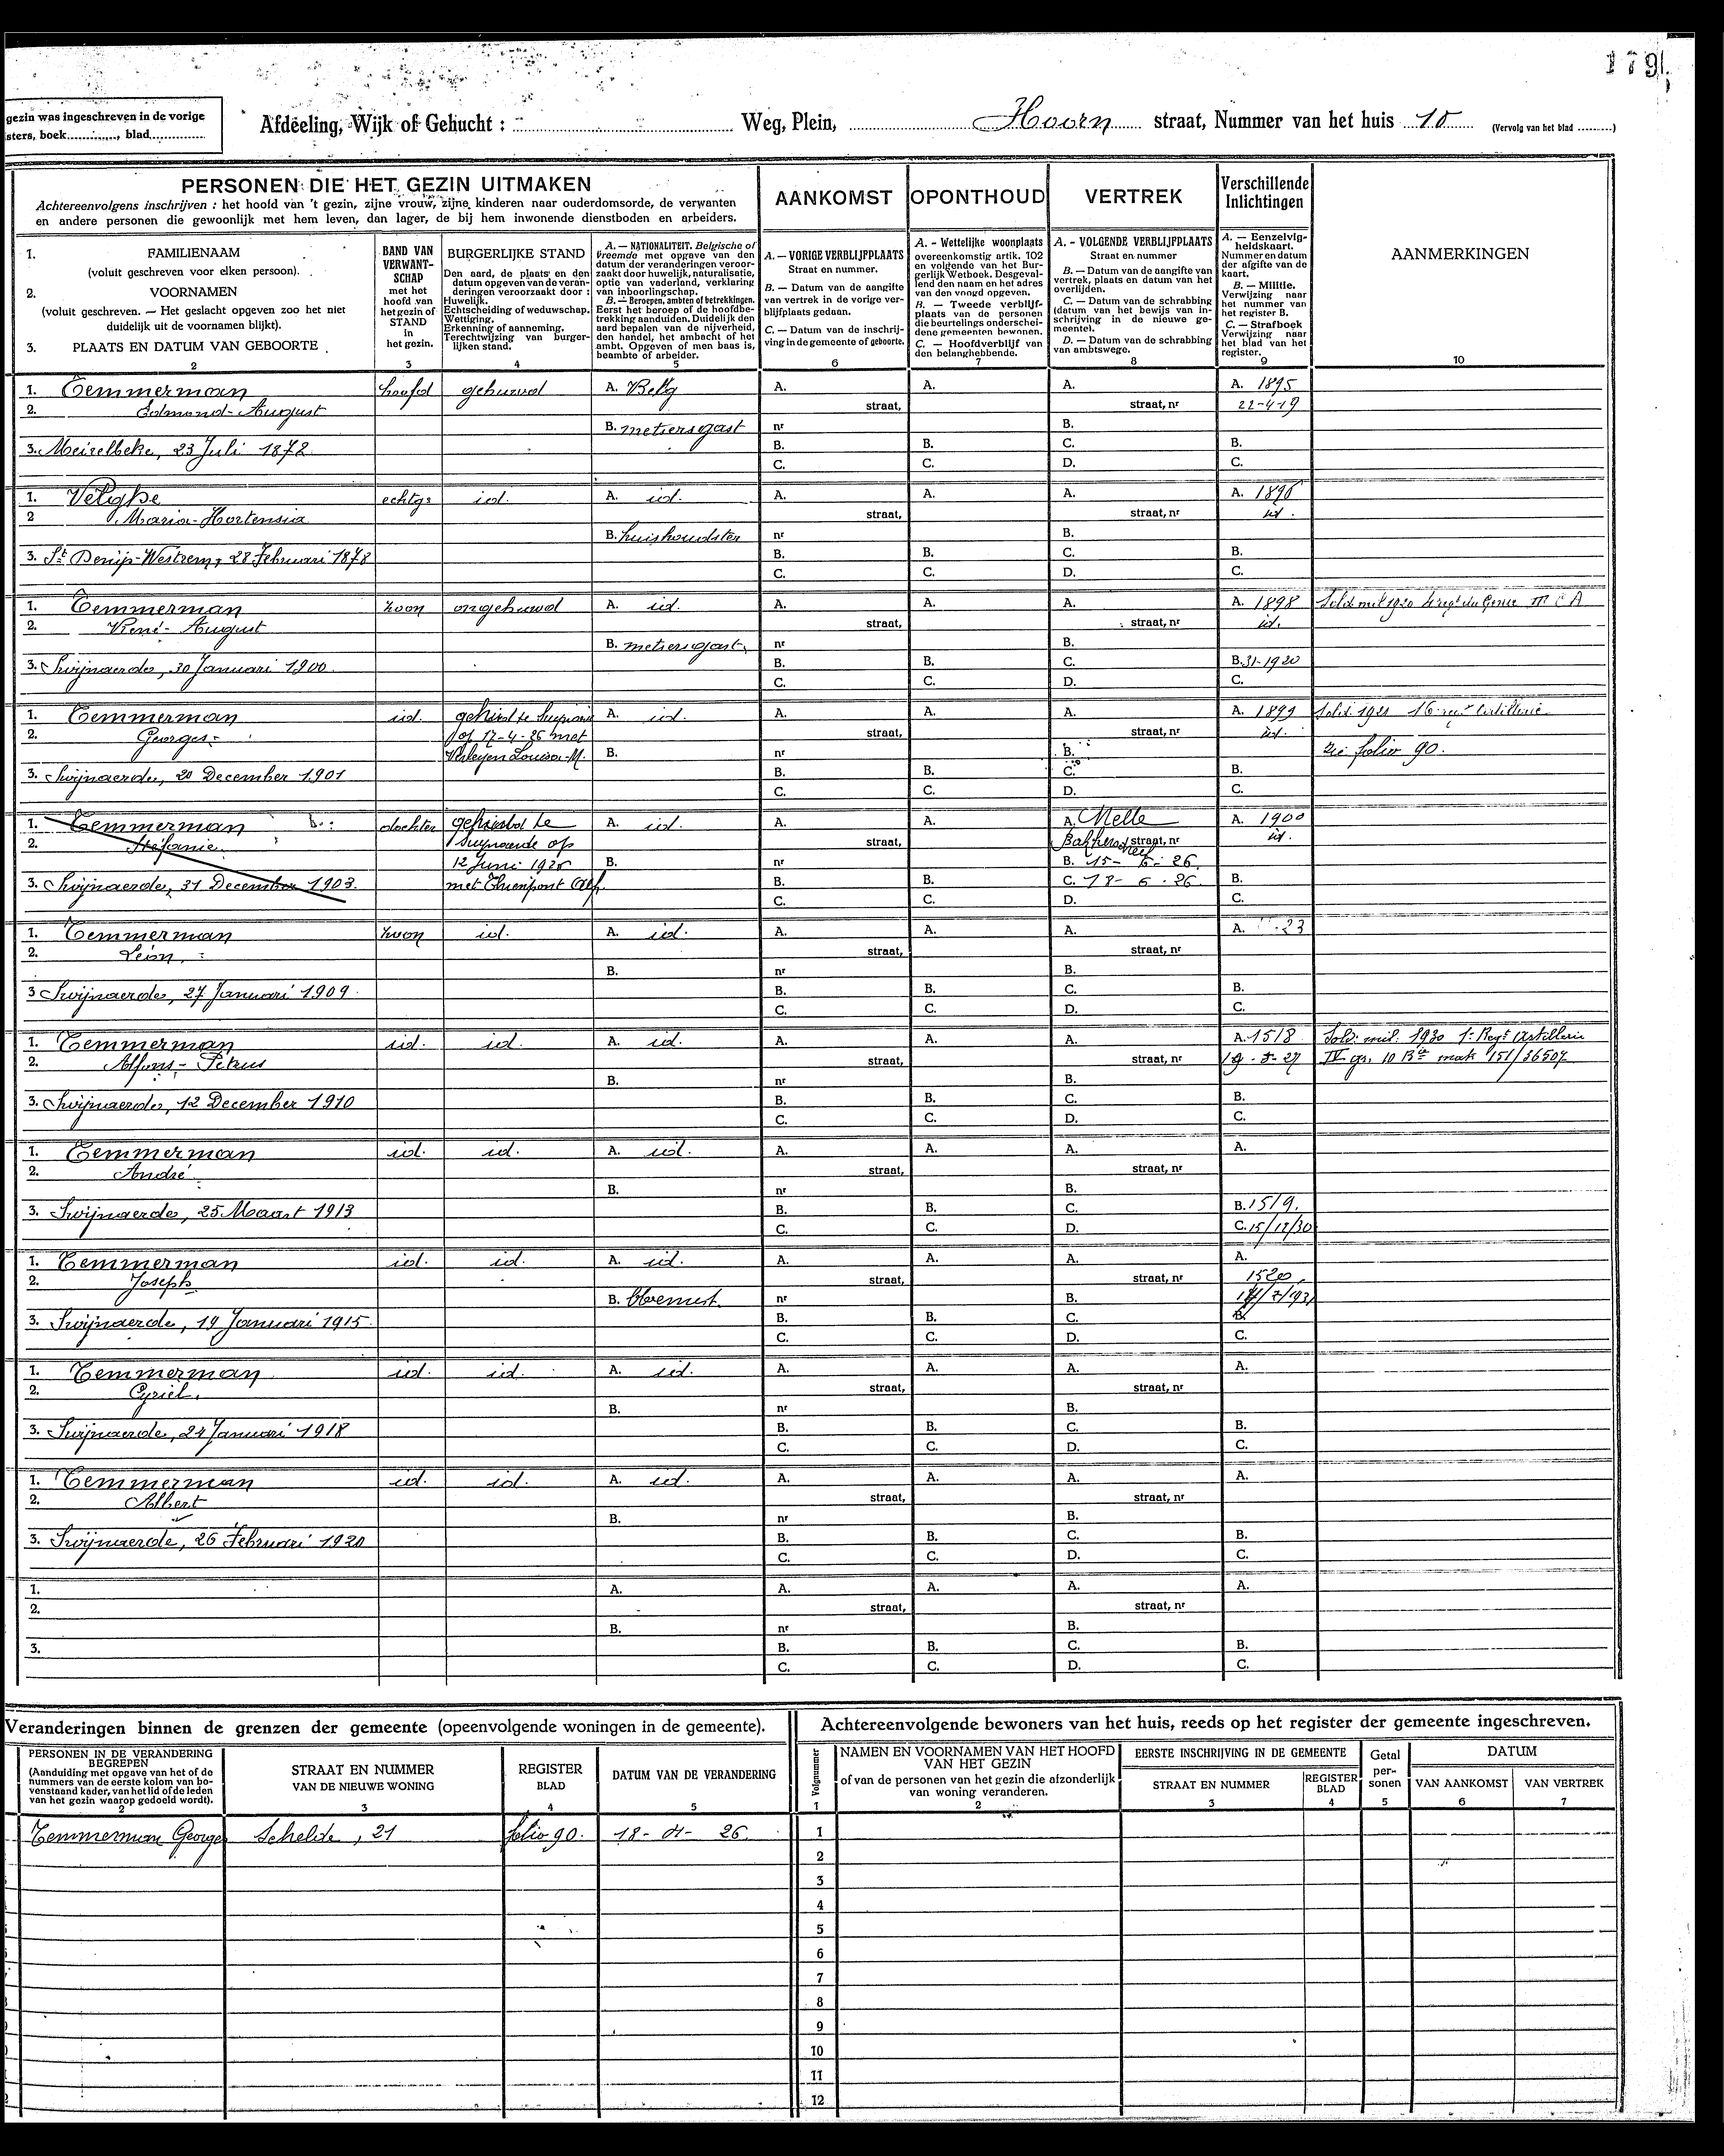 179
gezin was ingeschreven in de vorige
sters, boek, blad
Afdeeling, Wijk of Gehucht : Weg, Plein, Hoorn straat, Nummer van het huis 10 (Vervolg van het blad )
PERSONEN DIE HET GEZIN UITMAKEN
Achtereenvolgens inschrijven : het hoofd van 't gezin, zijne vrouw, zijne kinderen naar ouderdomsorde, de verwanten
en andere personen die gewoonlijk met hem leven, dan lager, de bij hem inwonende dienstboden en arbeiders.
AANKOMST
OPONTHOUD
VERTREK
Verschillende
Inlichtingen
1. FAMILIENAAM
(voluit geschreven voor elken persoon).
2. VOORNAMEN
(voluit geschreven. — Het geslacht opgeven zoo het niet
duidelijk uit de voornamen blijkt).
3. PLAATS EN DATUM VAN GEBOORTE
2
BAND VAN
VERWANT-
SCHAP
met het
hoofd van
het gezin of
STAND
in
het gezin.
3
BURGERLIJKE STAND
Den aard, de plaats en den
datum opgeven van de veran-
deringen veroorzaakt door :
Huwelijk.
Echtscheiding of weduwschap.
Wettiging.
Erkenning of aanneming.
Terechtwijzing van burger-
lijken stand.
4
A. — NATIONALITEIT. Belgische of
Vreemde met opgave van den
datum der veranderingen veroor-
zaakt door huwelijk, naturalisatie,
optie van vaderland, verklaring
van inboorlingschap.
B. — Beroepen, ambten of betrekkingen.
Eerst het beroep of de hoofdbe-
trekking aanduiden. Duidelijk den
aard bepalen van de nijverheid,
den handel, het ambacht of het
ambt. Opgeven of men baas is,
beambte of arbeider.
5
A. — VORIGE VERBLIJFPLAATS
Straat en nummer.
B. — Datum van de aangifte
van vertrek in de vorige ver-
blijfplaats gedaan.
C. — Datum van de inschrij-
ving in de gemeente of geboorte.
6
A. - Wettelijke woonplaats
overeenkomstig artik. 102
en volgende van het Bur-
gerlijk Wetboek. Desgeval-
lend den naam en het adres
van den voogd opgeven.
B. — Tweede verblijf-
plaats van de personen
die beurtelings onderschei-
dene gemeenten bewonen.
C. — Hoofdverblijf van
den belanghebbende.
7
A. - VOLGENDE VERBLIJFPLAATS
Straat en nummer
B. — Datum van de aangifte van
vertrek, plaats en datum van het
overlijden.
C. — Datum van de schrabbing
(datum van het bewijs van in-
schrijving in de nieuwe ge-
meente).
D. — Datum van de schrabbing
van ambtswege.
8
A. — Eenzelvig-
heidskaart.
Nummer en datum
der afgifte van de
kaart.
B. — Militie.
Verwijzing naar
het nummer van
het register B.
C. — Strafboek
Verwijzing naar
het blad van het
register.
9
AANMERKINGEN
10
1. Temmerman hoofd gehuwd A. Belg A. A. A. A. 1895
2. Edmond-August straat, straat, nr 22-4-19
B. metsersgast nr B.
3. Meirelbeke, 23 Juli 1872 B. B. C. B.
C. C. D. C.
1. Velghe echtge id. A. id. A. A. A. A. 1896
2 Maria-Hortensia straat, straat, nr id.
B. huishoudster nr B.
3. St Denijs-Westrem, 28 Februari 1878 B. B. C. B.
C. C. D. C.
1. Temmerman zoon ongehuwd A. id. A. A. A. A. 1898
2. René-August straat, straat, nr id.
B. metsersgast nr B.
3. Swijnaerde, 30 Januari 1900 B. B. C. B. 31-1920
C. C. D. C.
1. Temmerman id. A. id. A. A. A. A. 1899 Sold. 1921 16e regt Artillerie
2. Georges op 17-4-26 met straat, straat, nr id.
Verleyen Louisa-M. B. nr B. zie folio 90.
3. Swijnaerde, 20 December 1901 B. B. C. B.
C. C. D. C.
1. Temmerman dochter gehuwd te A. id. A. A. A. Melle A. 1900
2. Stefanie Swijnaerde op straat, straat, nr id.
12 Juni 1926 B. nr B. 15-6-26
3. Swijnaerde, 31 December 1903. met B. B. C. 18-6-26. B.
C. C. D. C.
1. Temmerman zoon id. A. id. A. A. A. A. 23
2. Léon. straat, straat, nr
B. nr B.
3 Swijnaerde, 27 Januari 1909 B. B. C. B.
C. C. D. C.
1. Temmerman id. id. A. id. A. A. A. A. 1518 Sold. mil. 1930 1e Regt Artillerie
2. Alfons-Petrus straat, straat, nr
B. nr B.
3. Swijnaerde, 12 December 1910 B. B. C. B.
C. C. D. C.
1. Temmerman id. id. A. id. A. A. A. A.
2. André straat, straat, nr
B. nr B.
3. Swijnaerde, 25 Maart 1913 B. B. C. B. 1519.
C. C. D. C. 15/12/30
1. Temmerman id. id. A. id. A. A. A. A.
2. Joseph straat, straat, nr 1520
B. bloemist nr B.
3. Swijnaerde, 19 Januari 1915 B. B. C. B.
C. C. D. C.
1. Temmerman id. id. A. id. A. A. A. A.
2. Cyriel. straat, straat, nr
B. nr B.
3. Swijnaerde, 24 Januari 1918 B. B. C. B.
C. C. D. C.
1. Temmerman id. id. A. id. A. A. A. A.
2. Albert straat, straat, nr
B. nr B.
3. Swijnaerde, 26 Februari 1920 B. B. C. B.
C. C. D. C.
1. A. A. A. A. A.
2. straat, straat, nr
B. nr B.
3. B. B. C. B.
C. C. D. C.
Veranderingen binnen de grenzen der gemeente (opeenvolgende woningen in de gemeente).
PERSONEN IN DE VERANDERING
BEGREPEN
(Aanduiding met opgave van het of de
nummers van de eerste kolom van bo-
venstaand kader, van het lid of de leden
van het gezin waarop gedoeld wordt).
2
STRAAT EN NUMMER
VAN DE NIEUWE WONING
3
REGISTER
BLAD
4
DATUM VAN DE VERANDERING
5
Temmerman Georges Schelde, 21 folio 90. 18-04-26.
Achtereenvolgende bewoners van het huis, reeds op het register der gemeente ingeschreven.
Volgnummer
1
NAMEN EN VOORNAMEN VAN HET HOOFD
VAN HET GEZIN
of van de personen van het gezin die afzonderlijk
van woning veranderen.
2
EERSTE INSCHRIJVING IN DE GEMEENTE
STRAAT EN NUMMER
3
REGISTER
BLAD
4
Getal
per-
sonen
5
DATUM
VAN AANKOMST
6
VAN VERTREK
7
1
2
3
4
5
6
7
8
9
10
11
12